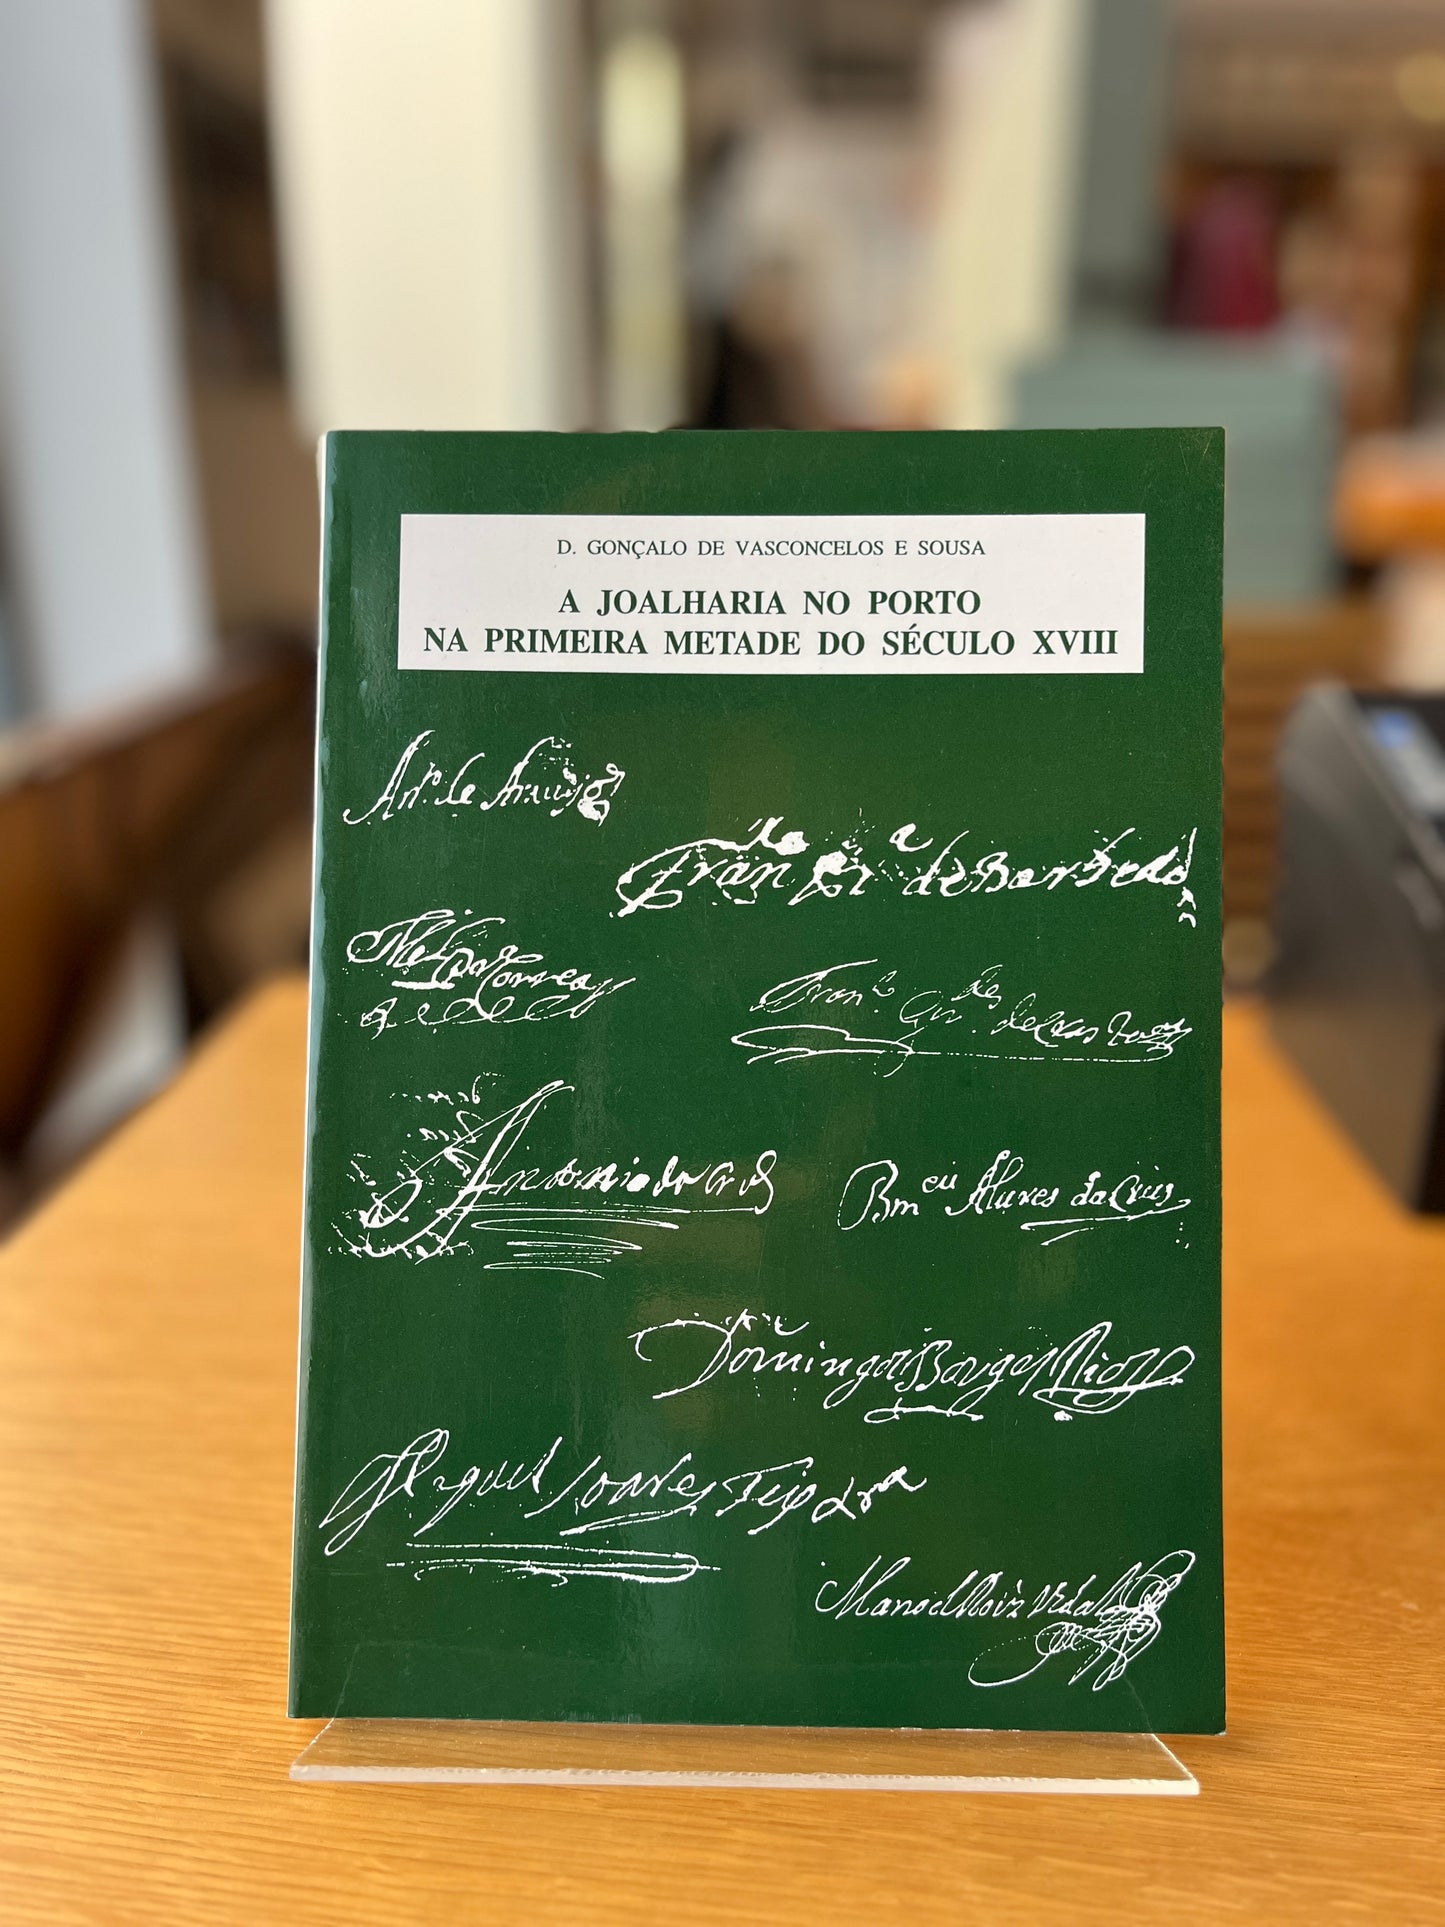 D. GONÇALO DE VASCONCELOS E SOUSA
A JOALHARIA NO PORTO
NA PRIMEIRA METADE DO SÉCULO XVIII
Antº. de Araujo
Franco Pra de Barbedo
Correa
Franco de Castro
Antonio da Cruz
Bmeu Alvres da Crus
Domingos Borges
Miguel Soares Teixeira
Manoel Roiz Vidal